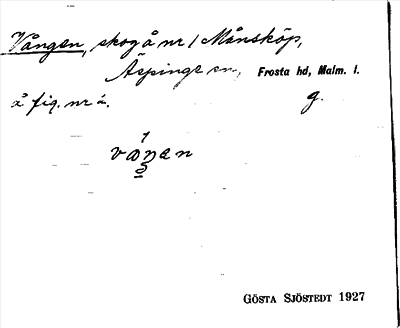 Vången, skog å nr 1 Månsköp,
Äspinge sn, Frosta hd, Malm. l.
å fig. nr 2. g.
GÖSTA SJÖSTEDT 1927